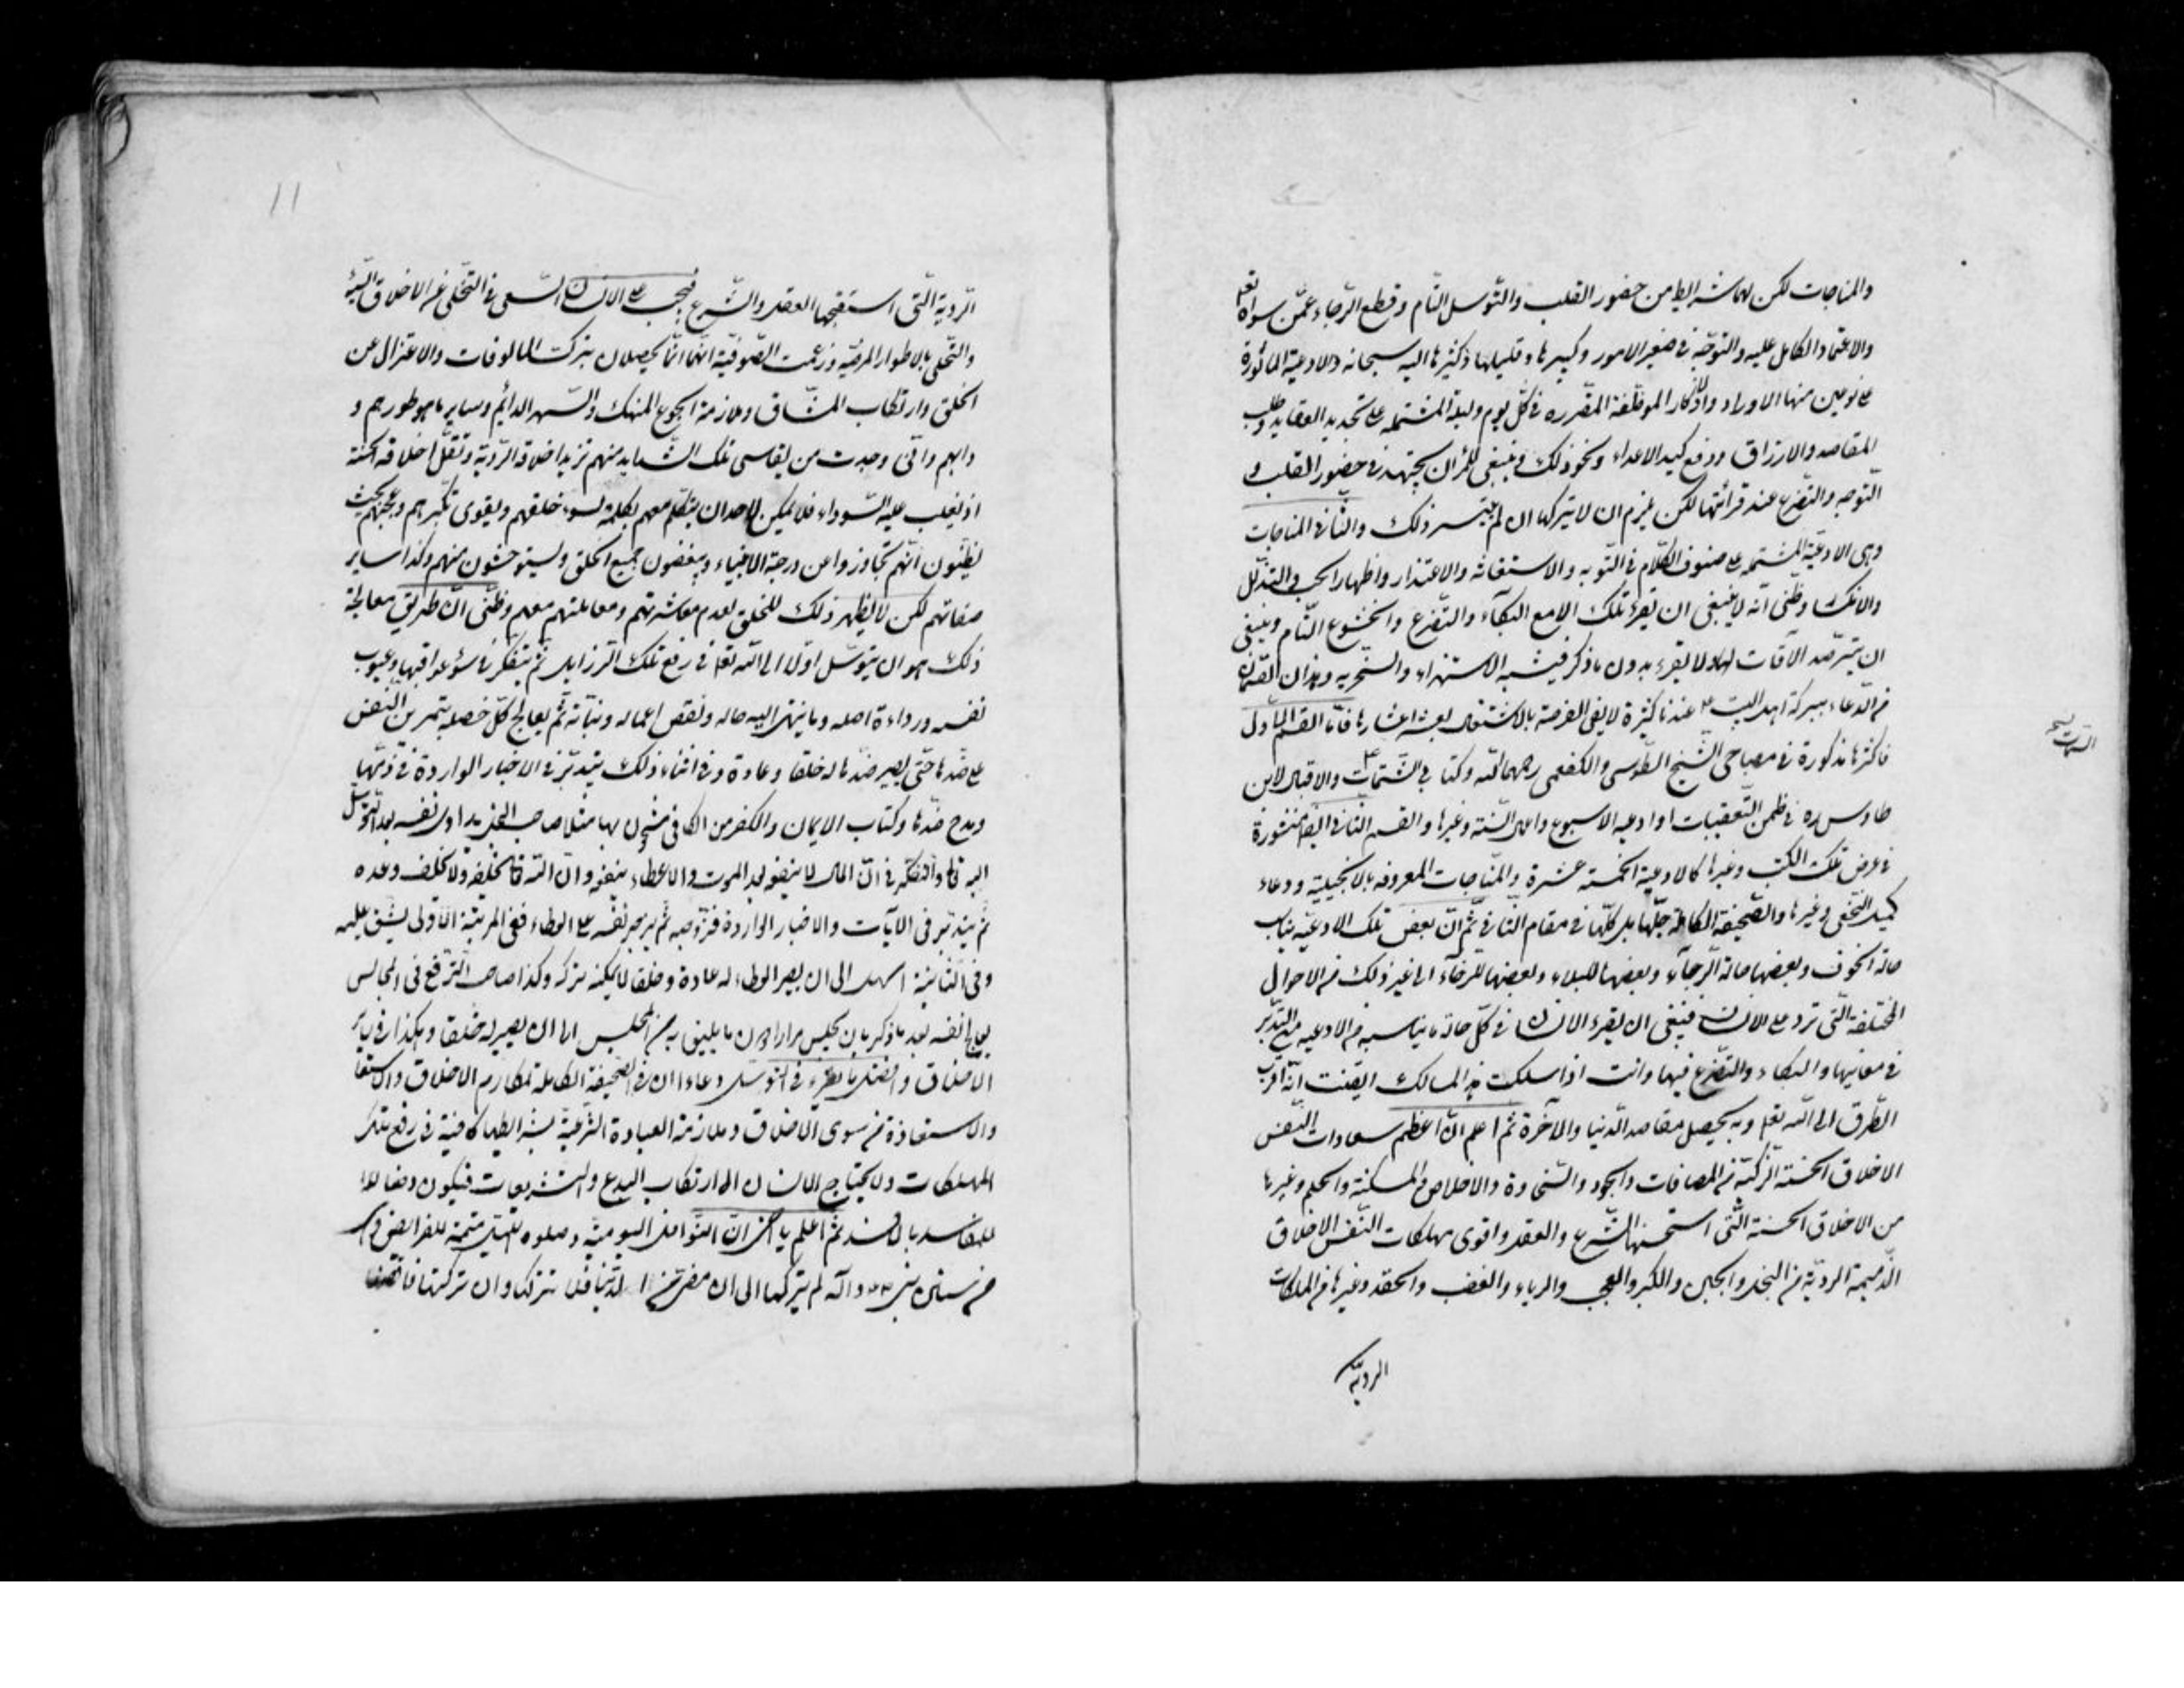 والمناجات لكن لهما شرايط من حضور القلب والتّوسل التّام وقطع الرّجاء عمّن سواه تعالى
والاعتماد الكامل عليه والتوجّه في صغير الامور وكبيرها وقليلها وكثيرها اليه سبحانه والادعية المأثورة
على نوعين منها الاوراد والاذكار الموظّفة المقرره في كلّ يوم وليلة المشتمله على تجديد العقايد وطلب
المقاصد والارزاق ودفع كيد الاعداء ونحو ذلك وينبغي للمرء ان يجتهد في حضور القلب و
التوجه والتضرع عند قرائتها لكن يلزم ان لا يتركها ان لم يتيسر ذلك والثّاني المناجات
وهي الادعيّة المشتمله على صنوف الكلام في التّوبه والاستغاثه والاعتذار واظهار الحب والتذلّل
والانكسار وظنّي انّه لا ينبغي ان يقرء تلك الا مع البكاء والتّضرع والخشوع التّام وينبغي
ان يترصّد الاوقات لها ولا يقرء بدون ما ذكر فيشبه الاستهزاء والسّخريه وهذان القسمان
من الدّعاء ببركة اهل البيت ع عندنا كثيرة لا يفي الفرصة بالاشتغال بعشر اعشارها فامّا القسم الاوّل
فاكثرها مذكورة في مصباحي الشّيخ الطّوسي والكفعمي رحمهما الله وكتابي التتمّات والاقبال لابن
السمات نسخه
طاوس ره في ضمن التّعقيبات وادعيه الاسبوع واعمال السّنة وغيرها والقسم الثّاني ايضا منشورة
في عرض تلك الكتب وغيرها كالادعية الخمسة عشرة والمناجات المعروفه بالانجيلية ودعاء
كميل النخعي وغيرها والصّحيفة الكاملة جلّها بل كلّها في مقام الثّاني ثمّ انّ بعض تلك الادعيّه يناسب
حالة الخوف وبعضها حالة الرّجاء وبعضها للبلاء وبعضها للرّخاء الى غير ذلك من الاحوال
المختلفة الّتي ترد على الانسان فينبغي ان يقرء الانسان في كلّ حالة ما يناسبه من الادعيه مع التدبّر
في معانيها والبكاء والتّضرع فيها وانت اذا سلكت هذا المسالك ايقنت انّه اقرب
الطّرق الى الله تعالى وبه يحصل مقاصد الدّنيا والآخرة ثم اعلم انّ اعظم سعادات النّفس
الاخلاق الحسنة الزكيّة من المصافات والجود والسّخاوة والاخلاص والمسكنة والحلم وغيرها
من الاخلاق الحسنة الّتي استحسنها الشّرع والعقل واقوى مهلكات النّفس الاخلاق
الذّميمة الرديّة من البخل والجبن والكبر والعجب والرياء والغضب والحقد وغيرها من الملكات
الرديّة
١١
الرّدية الّتي استقبحها العقل والشّرع فيجب على الانسان السّعى في التّخلّي عن الاخلاق السّيئة
والتّحلّي بالاطوار المرضيّه وزعمت الصّوفيّة انّهما انّما يحصلان بترك المالوفات والاعتزال عن
الخلق وارتكاب المشّاق وملازمة الجوع المنهك والسّهر الدائم وساير ما هو طورهم و
دابهم وانّي وجدت من يقاسي تلك الشّدايد منهم تزيد اخلاقه الرّديّة وتقلّ اخلاقه الحسنة
اذ يغلب عليه السّوداء فلا يمكن لاحد ان يتكلّم معهم بكلمة لسوء خلقهم ويقوى تكبّرهم وعجبهم بحيث
يظنّون انّهم تجاوزوا عن درجة الانبياء ويبغضون جميع الخلق ويستوحشون منهم وكذا ساير
صفاتهم لكن لا يظهر ذلك للخلق لعدم معاشرتهم ومعاملتهم معهم وظنّي انّ طريق معالجة
ذلك هو ان يتوسّل اوّلا الى الله تعالى في رفع تلك الرّزايل ثمّ يتفكّر في سوء عواقبها وعيوب
نفسه ورداءة اصله وما ينتهى اليه حاله ونقص اعماله ونيّاته ثمّ يعالج كلّ خصلة بتمرين النّفس
على ضدّها حتّى يصير ضدّها له خلقا وعادة وفي اثناء ذلك يتدبّر في الاخبار الواردة في ذمّها
ومدح ضدّها وكتاب الايمان والكفر من الكافي مشحون بها مثلا صاحب البخل يداوى نفسه بعد التوسّل
اليه تعالى والتفكّر في انّ المال لا ينفع بعد الموت والاعطاء ينفع وانّ الله تعالى يخلفه ولا يخلف وعده
ثمّ يتدبّر في الآيات والاخبار الواردة في ثمّ يجبر نفسه على العطاء ففي المرتبة الاولى يشق عليه
وفي الثّانية اسهل الى ان يصير العطاء له عادة وخلقا لا يمكنه تركه وكذا صاحب التّرفّع في المجالس
يعالج نفسه بعد ما ذكر بان يجلس مرارا دون ما يليق به من المجلس الى ان يصير له خلقا وهكذا في ساير
الاخلاق وافضل ما يقرء في التوسّل دعاءان في الصّحيفة الكاملة لمكارم الاخلاق والاستعا
والاستعاذة من سوى الاخلاق وملازمة العبادة الشّرعيّة بشرايطها كافية في رفع تلك
المهلكات ولا يحتاج الانسان الى ارتكاب البدع والتشريعات فيكون دفعا
للفاسد بالافسد ثمّ اعلم يا اخي انّ النّوافل اليوميّة وصلوه اللّيل متمّمة للفرايض وهي
من سنن نبى ص وآله لم يتركها الى ان مضى من الدّنيا فلا تتركها وان تركتها فاقضها